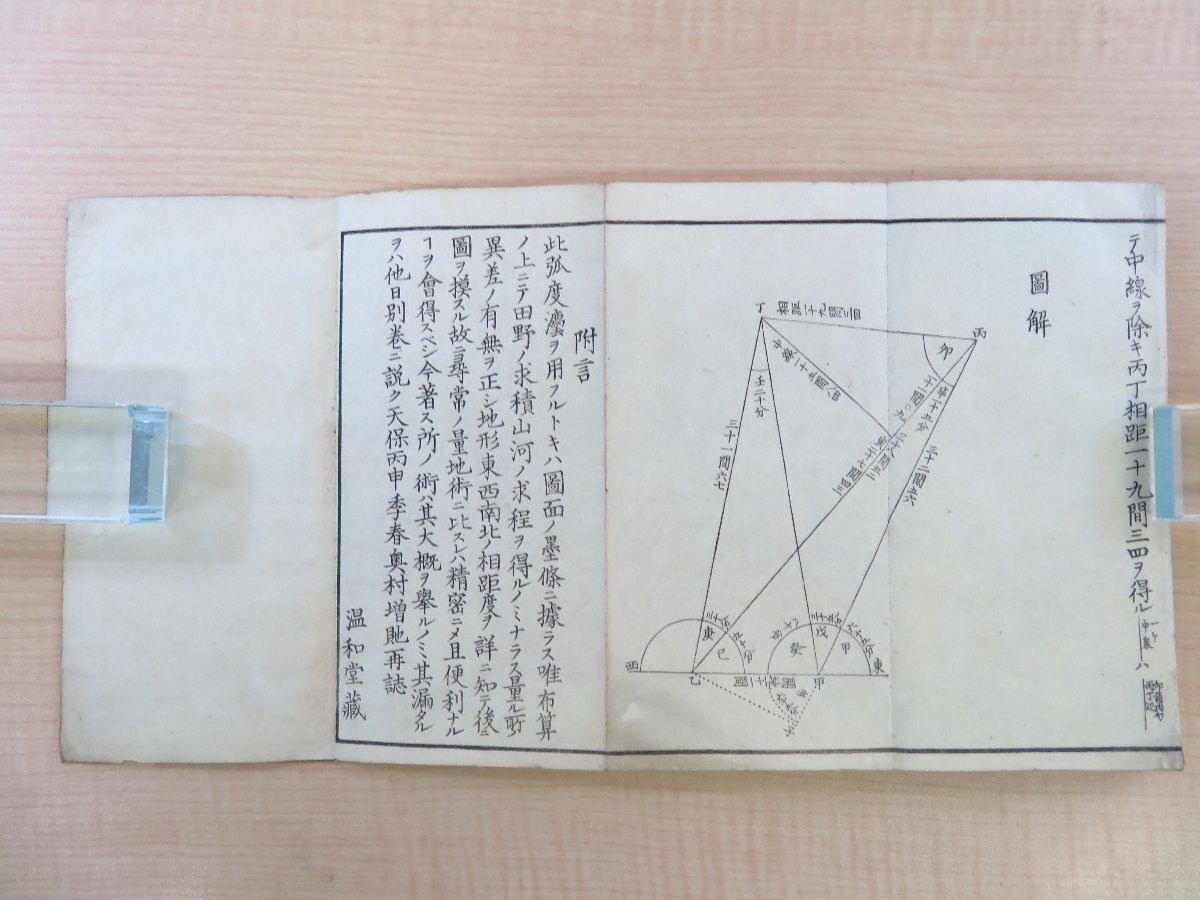 テ中線ヲ除キ丙丁相距一十九間三四ヲ得ル
圖解
丙
卯
丁
壬二十分
三十一間六七
二十二間五六
庚
己
戊
癸
甲
東
西
乙
甲
子
附言
此弧度
ヲ用フルトキハ圖面ノ墨條ニ據ラス唯布算
ノ上ニテ田野ノ求積山河ノ求程ヲ得ルノミナラス量ル所ノ
異差ノ有無ヲ正シ地形東西南北ノ相距度ヲ詳ニ知テ後ニ
圖ヲ摸スル故ニ尋常ノ量地術ニ比スレハ精密ニメ且便利ナル
ヿヲ會得スベシ今著ス所ノ術ハ其大概ヲ擧ルノミ其漏タル
ヲハ他日別卷ニ説ク天保丙申季春奥村増貤再誌
温和堂藏